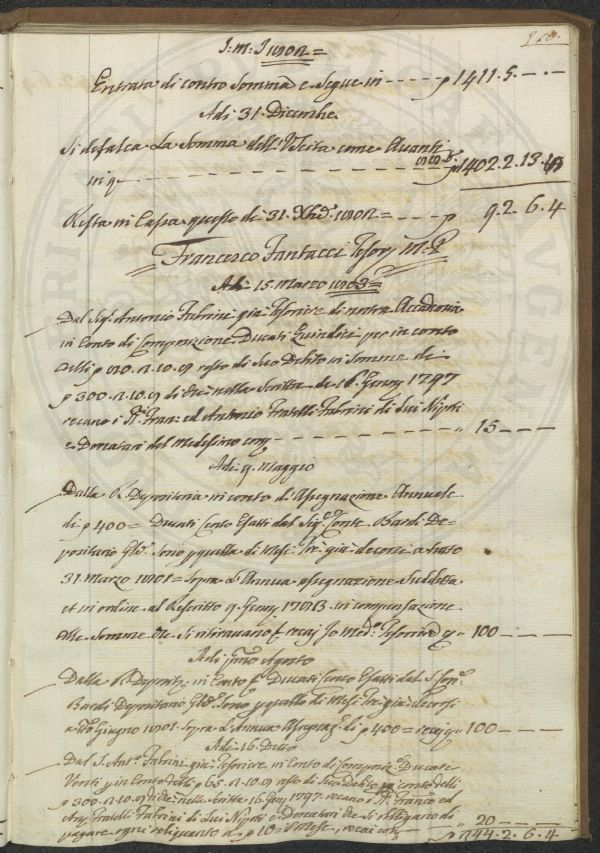 Entrata di contro somma e segue in - - - - p 1411. 5. - . -
Adi 31. Dicembre
Si defalca La Somma dell' Vscita come Avanti
in q - - - p 1402. 2. 13. 
Resta in Cassa questo dì 31. Xbre = - - - p 9. 2. 6. 4
Francesco Fantacci Tesor. M. P.
Adi 15. Marzo
Dal Sig. Antonio Fabrini già Tesoriere di nostra Accademia
in Conto di Composizione Ducati Quindici per in conto
delli p resto di Suo Debito in Somma di
p 300. di che nella Scritta de 16. Genn. 1797
recano i SS. Fran. ed Antonio Fratelli Fabrini di Lui Nipoti
e Donatari del Medesimo - - - " 15 - - -
Adi 9. Maggio
Dalla R. Depositeria in conto d'Assegnazione Annuale
di p 400 = Ducati Cento Esatti dal Sig. Conte Bardi De=
positario Gle. Sono p quella di Mesi Tre già decorsi a tutto
31. Marzo Sopra L'Annua assegnazione Suddetta
et in ordine al Rescritto 9. Genn. in compensazione
alle Somme che Si ritiravano recai Io Med. Tesoriere " 100 - - -
Adi primo Agosto
Dalla R. Deposit. in Conto Ducati Cento Esatti dal S.
Bardi Depositario Gle. Sono p quello di Mesi Tre già decorsi
a tto Giugno Sopra L'Annua Assegnaz. di p 400 = recai " 100 - - -
Adi 16. Detto
Dal S. Ant. Fabrini già Tesoriere in Conto di Composiz. Ducati
Venti p in Conto delli p 65. resto di Suo Debito in conto delli
p 300. di che nella Scritta 16. Gen. 1797. recano i SS. Franco ed
Ant. Fratelli Fabrini di Lui Nipoti e Donatari che Si obbligano di
pagare ogni restante a p 10 = il Mese, recai - " 20 - - -
2. 6. 4